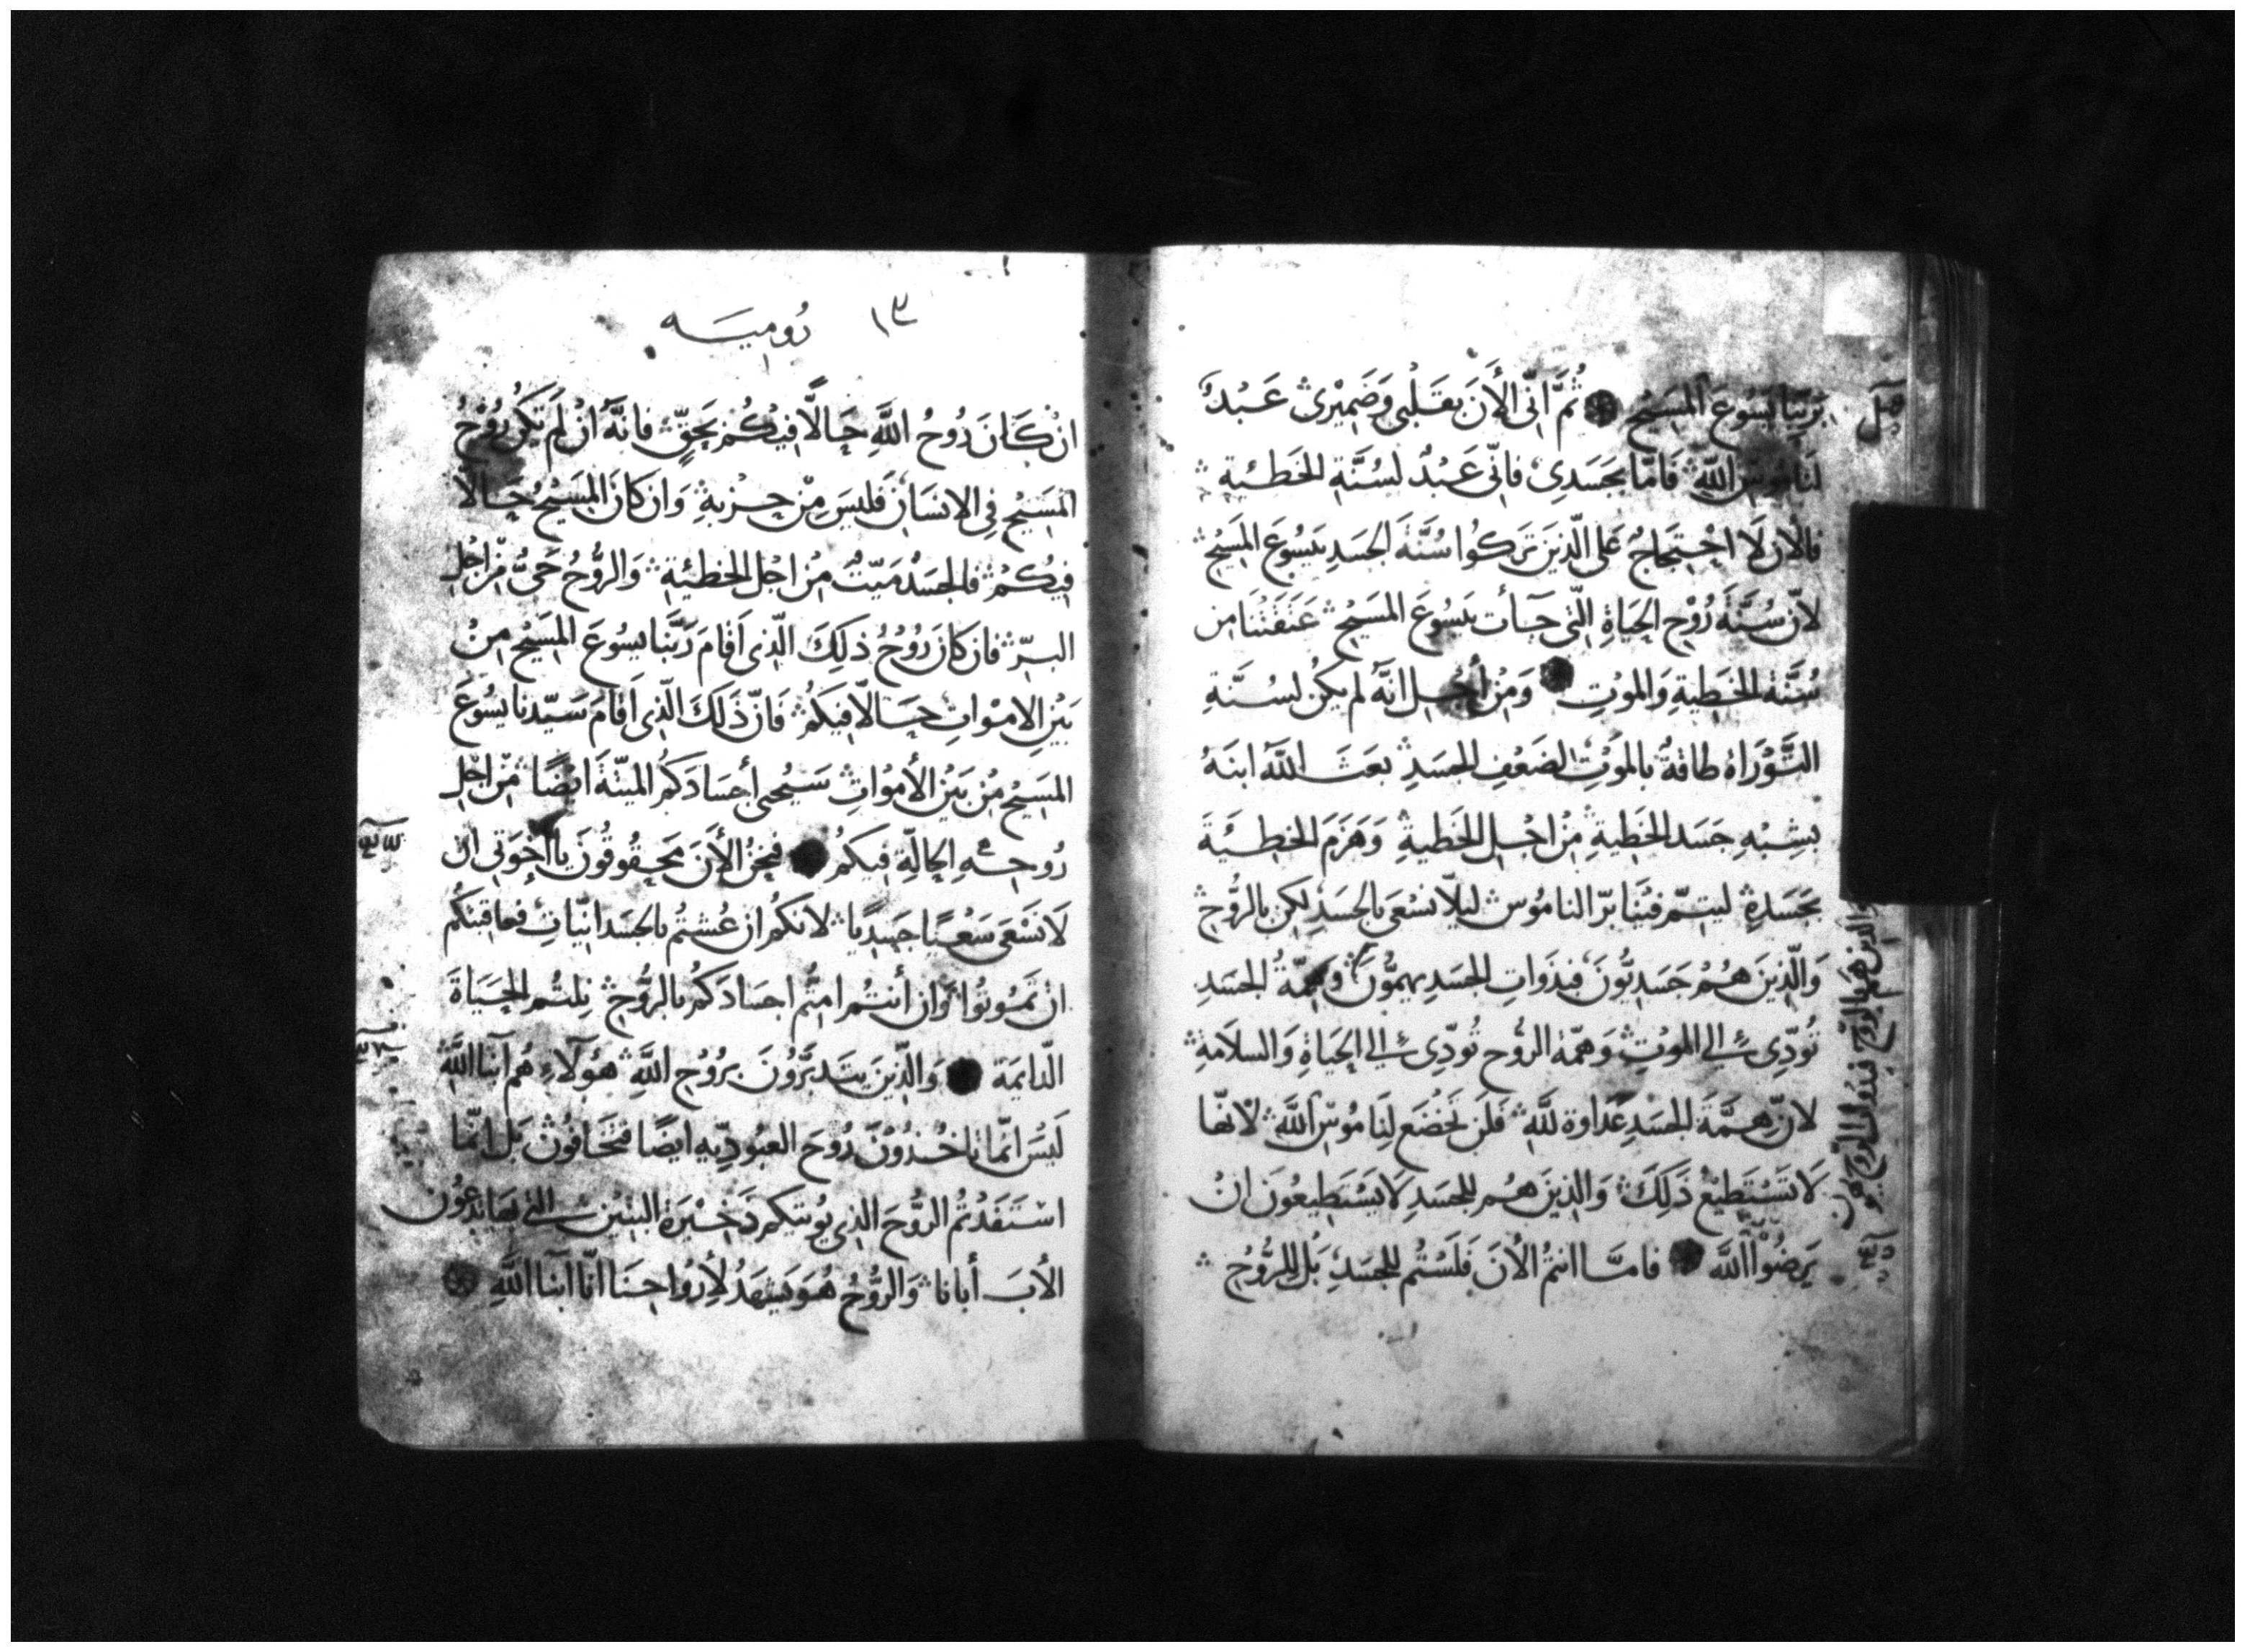 بَرَبِّنَا يَسُوعَ المَسِيْحِ ثُمَّ اِنِّى الأَنَ بِقَلْبِى وَضَمِيْرِىْ عَبْدٌ
لنَامُوسِ اللَّهِ فَامَّا بجَسَدِى فانِّى عَبْدٌ لسُنَّةِ الخَطئِة
فالانَ لَا احْتِجَاجُ عَلى الَّذِيْنَ تَرَكُوا سُنَّةَ الجَسَدِ بيَسُوعَ المَسِيْحْ
لانَّ سُنَّةَ رُوْحِ الحَيَاةِ الَّتى جَآأت بيَسُوعَ المَسِيْحْ عَتَقَتْنَا من
سُنَّة الخَطِيةِ وَالموْتِ وَمِنْ أَجْل انَّهُ لم يكُن لسُنَّةِ
التَّوْرَاة طَاقةٌ بالموْتِ لضَعْفِ الجسَدِ بعَثَ اللَّهُ ابنَهُ
بشِبْهِ جَسَد الخَطِيةِ مِنْ اجْل الخَطيةِ وَهَزَمَ الخطِيَةَ
بجَسَدِهِ ليتِمّ فيْنَا برّ النامُوس ليلّا نسْعَى بالجَسَدِ لكِن بالرُّوْح
وَالَّذِينَ هُمْ جَسَدِيُّونَ فبذَوَاتِ الجسَدِ يهِمُّونَ وَهِمَّةُ الجسَدِ
تُودِّى الى الموْتِ وَهمّة الرُّوح تُودِّى الى الحَيَاةِ وَالسلَامَةِ
لانّ هِمَّةَ الجسَدِ عَدَاوة للَّهِ فَلن تَخْضَع لِنَامُوسِ اللَّهِ لانهّا
لَا تَسْتَطِيْعُ ذَلِكَ وَالَّذِينَ هُم للجسَدِ لَا يَسْتَطِيعُونَ انْ
يَرضُوْا اللَّهَ فامَّا انتُمْ الأنَ فَلَسْتُم للجسَدِ بَلْ للرُّوْحِ
والذين هم بالروح
١٣ رُوميَه
انْ كَانَ رُوحُ اللَّهِ حَالًّا فِيْكُمْ بحَقٍّ فانَّهُ انْ لَم تَكُن رُوْحُ
المَسِيْحِ فِى الانسَانِ فَليسَ مِنْ حِزْبهِ وَان كانَ المَسِيْحُ حَالّا
فِيْكُمْ فالجسَدُ مَيّتٌ مِنْ اجْل الخطيْئةِ وَالرُّوحُ حَىٌّ مّنْ اجْلِ
البرّ فان كانَ رُوْحُ ذلِكَ الَّذِى اَقامَ رَبَّنَا يسُوْعَ المسِيْحِ مِنْ
بَيْنِ الامْوَاتِ حَالّا فِيكمْ فَانّ ذَلكَ الَّذِى اَقَامَ سَيّدنا يسُوْعَ
المسِيْحِ مِنْ بَيْنِ الأمْوَاتِ سَيُحْيى أجسَادَكمُ الميتَةَ ايْضًا مِن اجْلِ
رُوحِهِ الحالّةِ فيكمْ فنَحْنُ الأَنَ مَحقُوقُونَ يا اخْوَتى ان
لَا نَسْعَى سَعْيًا جَسِدِيًا لانكمُ ان عُشْتُم بالجسَدانيّاتِ فعاقبتكُم
انْ تَمُوتُوا وَان أنتُم امتُّم اجسَادَكُم بالرُّوْحِ نِلتُم الحَيَاةَ
الدّايمَة وَالَّذِينَ يتَدبَّرُونَ برُوْحِ اللَّهِ هؤلَآءِ هُم ابنَا اللَّهِ
لَيْسَ انّما تاخذُوْنَ رُوحَ العبُودِيّهِ ايضًا فتخَافُونْ بَل انّمَا
اسْتَفَدْتُمُ الرُّوْحَ الذِى يُوتيكم ذَخِيْرَةَ البَنِيْن التى بهَا تدْعُوْن
الأَبَ أبَانا وَالرُّوْحُ هُوَ يَشهَدُ لأِرْوَاحِنَا انّا ابنَا اللَّهِ